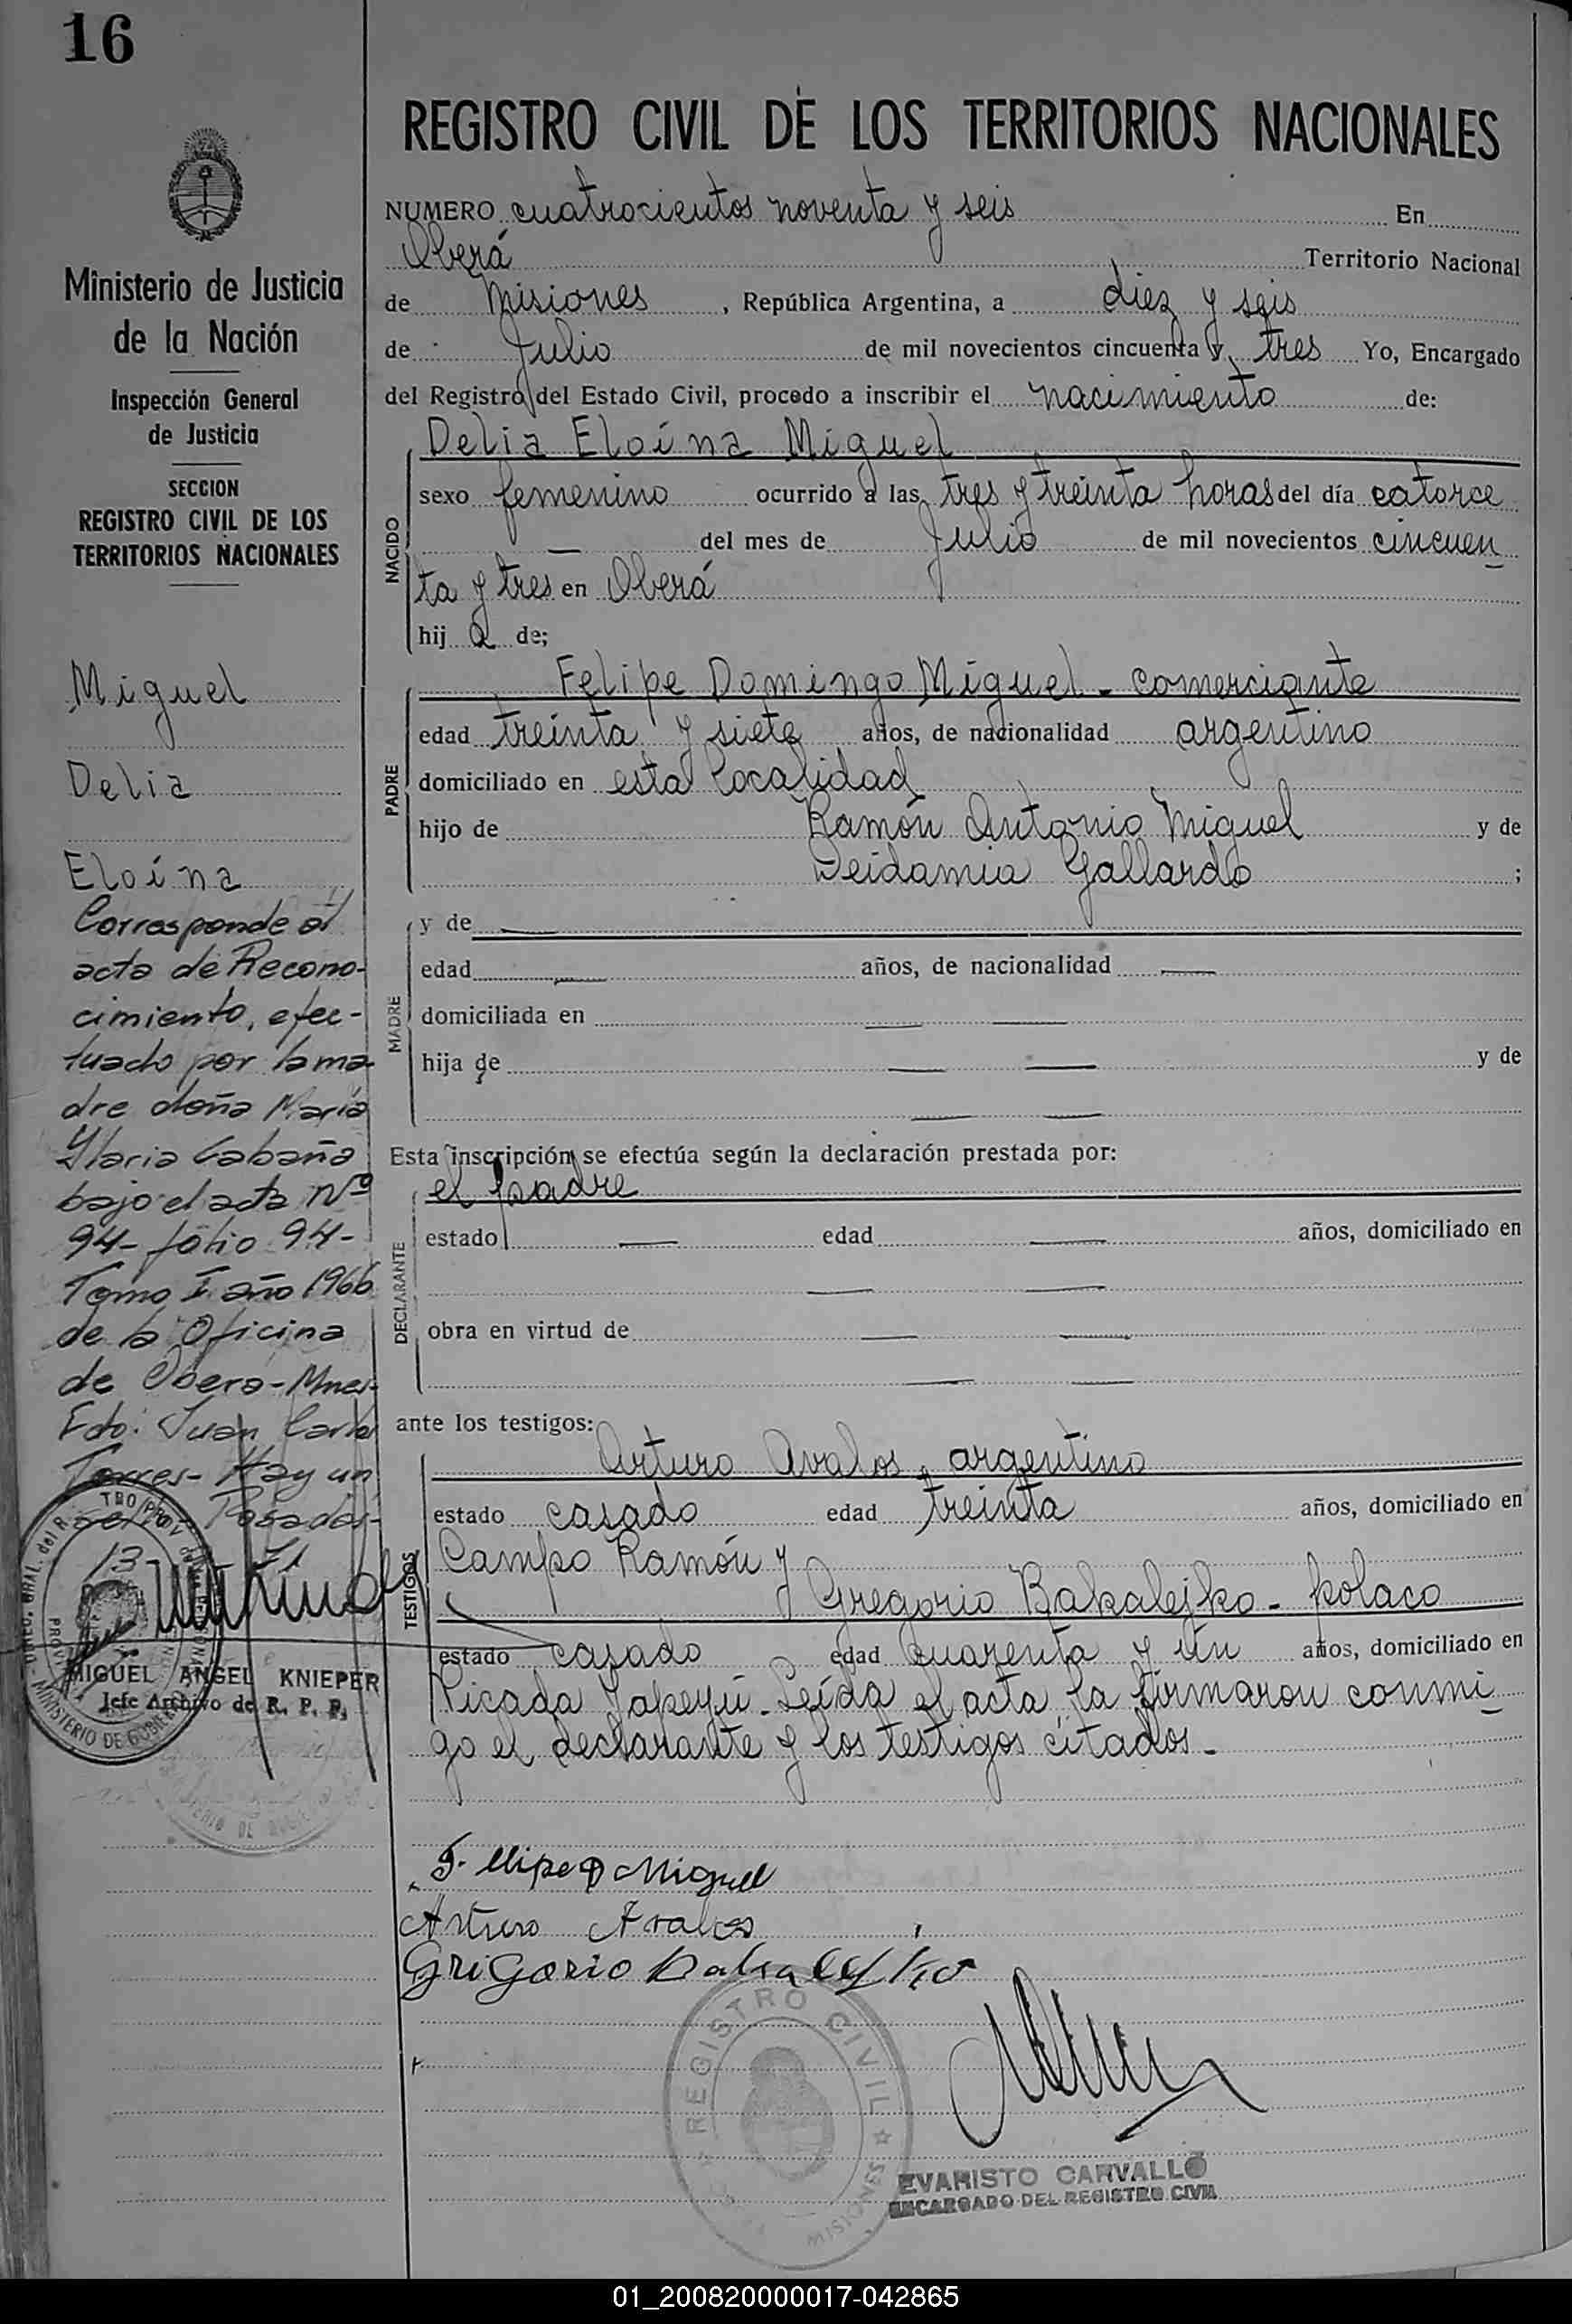 16
REGISTRO CIVIL DE LOS TERRITORIOS NACIONALES
NUMERO cuatrocientos noventa y seis En
Oberá Territorio Nacional
de Misiones, República Argentina, a diez y seis
de Julio de mil novecientos cincuenta y tres Yo, Encargado
del Registro del Estado Civil, procedo a inscribir el nacimiento de:
NACIDO
Delia Eloína Miguel
sexo femenino ocurrido a las tres y treinta horas del día catorce
— del mes de Julio de mil novecientos cincuen
ta y tres en Oberá
hija de;
PADRE
Felipe Domingo Miguel - comerciante
edad treinta y siete años, de nacionalidad argentino
domiciliado en esta localidad
hijo de Ramón Antonio Miguel y de
Deidamia Gallardo ;
MADRE
y de —
edad — años, de nacionalidad —
domiciliada en — —
hija de — — y de
— —
Esta inscripción se efectúa según la declaración prestada por:
DECLARANTE
el padre
estado — edad — años, domiciliado en
— —
obra en virtud de — —
— —
ante los testigos:
TESTIGOS
Arturo Avalos, argentino
estado casado edad treinta años, domiciliado en
Campo Ramón y
Gregorio Bakalejko - polaco
estado casado edad cuarenta y un años, domiciliado en
Picada Yapeyú. Leída el acta la firmaron conmi
go el declarante y los testigos citados.-
Arturo Avalos
Grigorio
REGISTRO CIVIL
MISIONES
EVARISTO CARVALLO
ENCARGADO DEL REGISTRO CIVIL
Ministerio de Justicia
de la Nación
Inspección General
de Justicia
SECCION
REGISTRO CIVIL DE LOS
TERRITORIOS NACIONALES
Miguel
Delia
Eloína
Corresponde al
acta de Recono-
cimiento, efec-
tuado por la ma-
dre doña María
Ilaria Cabaña
bajo el acta Nº
94- folio 94-
Tomo I año 1966
de la Oficina
de Oberá-Mnes-
Fdo: Juan Carlos
Torres- Hay un
sello Posadas-
13
71
MIGUEL ANGEL KNIEPER
Jefe Archivo de R. P. P.
MINISTERIO DE GOBIERNO
01_200820000017-042865